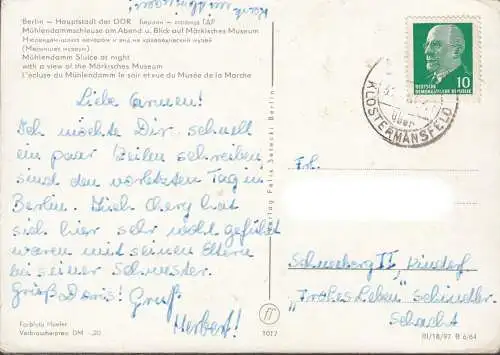 Berlin — Hauptstadt der DDR Берлин — столица ГДР
Mühlendammschleuse am Abend u. Blick auf Märkisches Museum
(Меркишес музей)
Mühlendamm Sluice at night
with a view of the Märkisches Museum
L'écluse du Mühlendamm le soir et vue du Musée de la Marche
Liebe Carmen!
Ich möchte Dir schnell
ein paar Zeilen schreiben,
sind den vorletzten Tag in
Berlin. Dich hat
sich hier sehr wohl gefühlt
waren mit seinen Eltern
bei seiner Schwester.
Gruß Doris! Gruß
Herbert!
Farbfoto Hueler
Verbraucherpreis DM -,20
Verlag Felix Setecki Berlin
ff
1017
10
DEUTSCHE DEMOKRATISCHE REPUBLIK
über
KLOSTERMANSFELD
Frl.
Schneeberg II, Kinderf
"Frohes Leben" Schindler-
Schacht
III/18/97 B 6/64